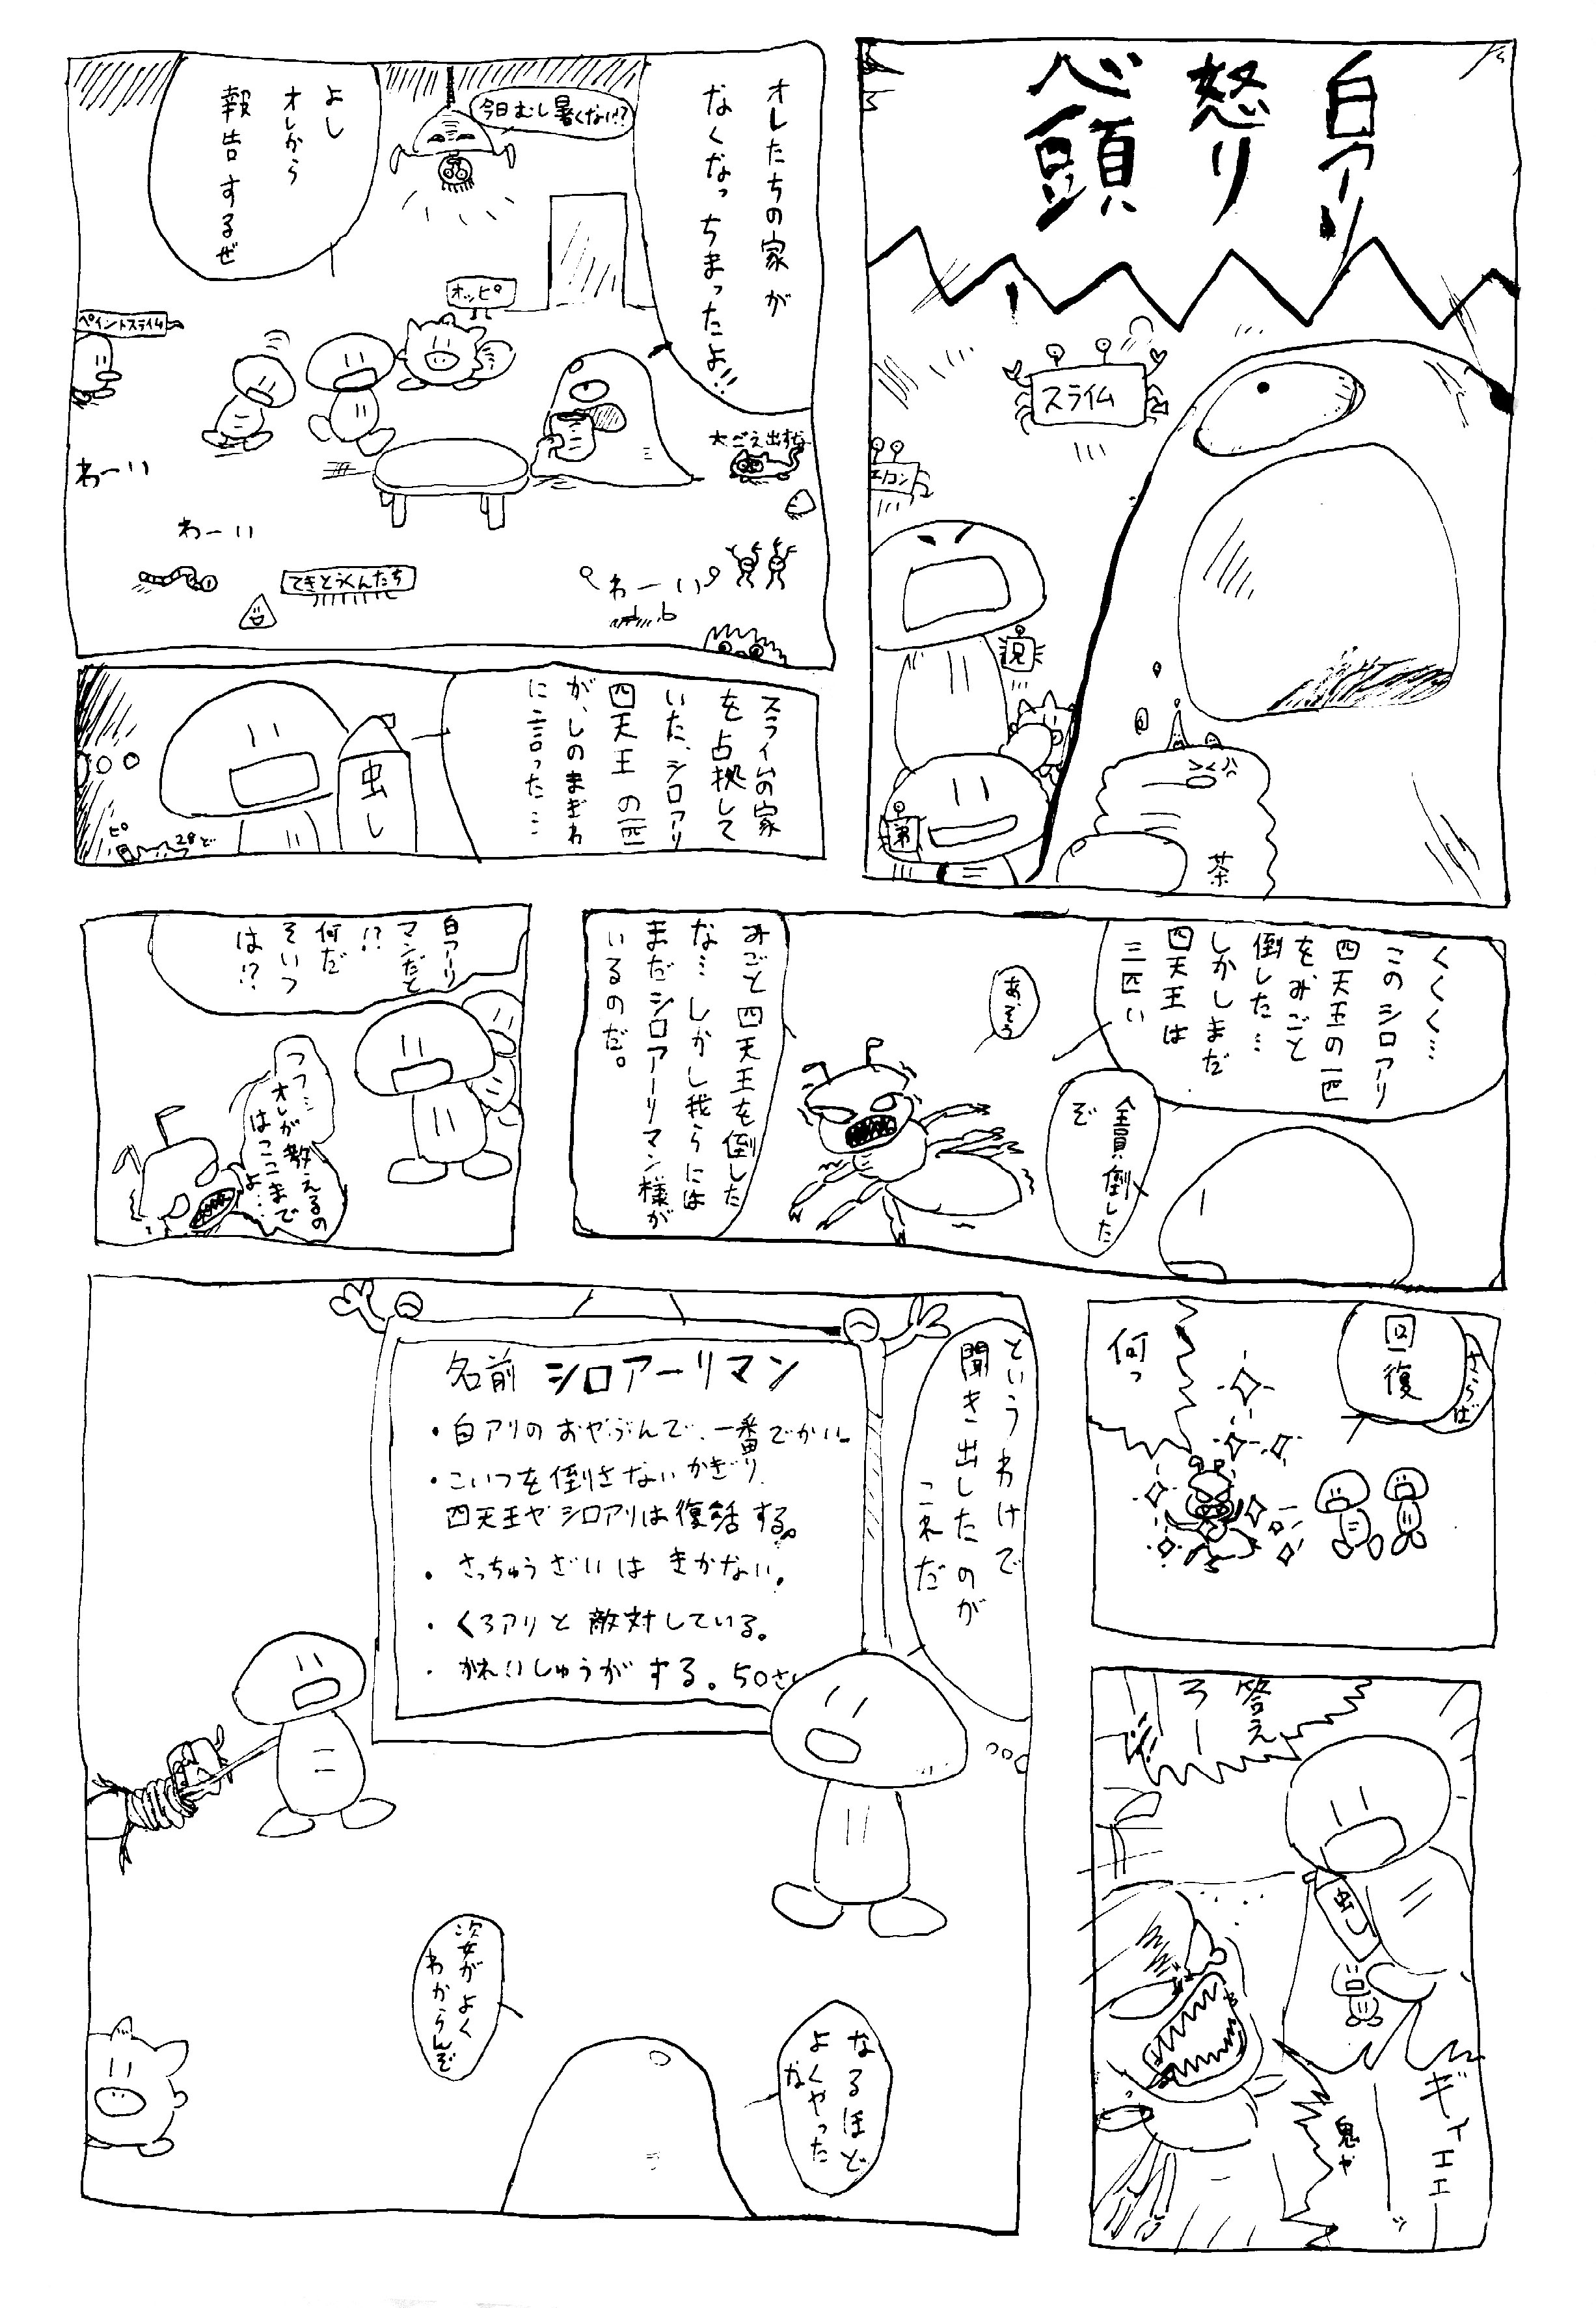 白アリ
怒り
心頭
スライム
エカン
兄
弟
茶
オレたちの家が
なくなっちまったよ!!
今日むし暑くない!?
よし
オレから
報告するぜ
オッピ
ペイントスライム
大ごえ出すな
わーい
わーい
わーい
てきとうくんたち
スライムの家
を占拠して
いた、シロアリ
四天王の一匹
が、しのまぎわ
に言った…
虫し
ピ
28ど
くくく…
このシロアリ
四天王の一匹
を、みごと
倒した…
しかしまだ
四天王は
三匹い
全員倒した
ぞ
あ、そう
みごと四天王を倒した
な… しかし我らには
まだシロアーリマン様が
いるのだ。
白アーリ
マンだと
!?
何だ
そいつ
は!?
フフ…
オレが教えるの
はここまで
よ…
さらば
回復
何っ
答え
ろー
虫し
ギィエエーッ
鬼や
というわけで
聞き出したのが
これだ
名前 シロアーリマン
・白アリのおやぶんで、一番でかい
・こいつを倒さないかぎり、
四天王やシロアリは復活する。
・さっちゅうざいはきかない。
・くろアリと敵対している。
・かれいしゅうがする。50さい
なるほど
よくやった
な
姿がよく
わからんぞ